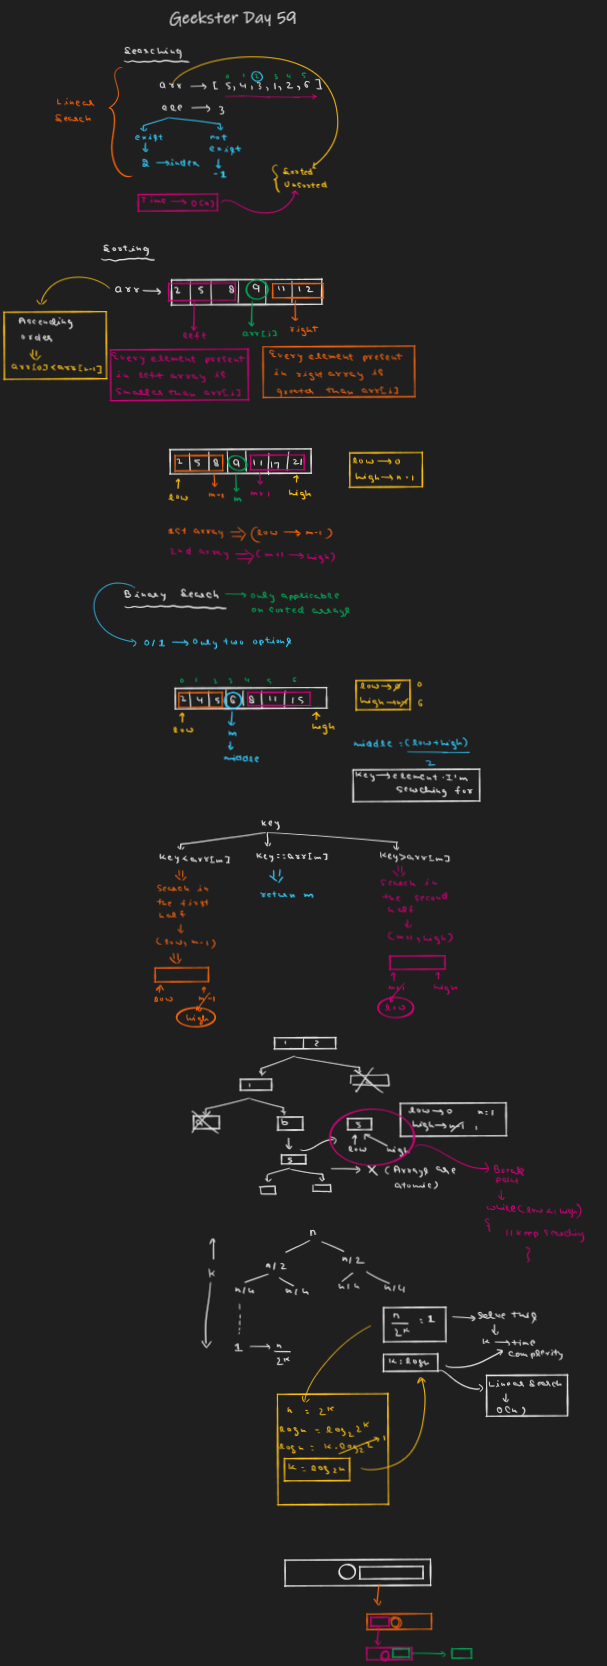 Geekster Day 59
Searching
0 1 2 3 4 5
arr → [ 5, 4, 3, 1, 2, 6 ]
Linear
Search
→ 3
exist
not
exist
2 → index
-1
Sorted
Unsorted
Time → O(n)
Sorting
arr →
2 5 8 9 11 12
Ascending
order
left
arr[i]
right
Every element present
in left array is
smaller than arr[i]
Every element present
in right array is
greater than arr[i]
2 5 8 9 11 17 21
low → 0
high → n-1
low
m-1
m
m+1
high
1st array ⇒ (low → m-1)
2nd array ⇒ (m+1 → high)
Binary Search → only applicable
on sorted arrays
0/1 → Only two options
0 1 2 3 4 5 6
2 4 5 6 8 11 15
low → 0
high → 6
low
m
high
middle
middle = (low+high)
2
Key → element I'm
searching for
key
key < arr[m]
key == arr[m]
key > arr[m]
search in
the first
half
return m
search in
the second
half
(low, m-1)
(m+1, high)
low
m-1
high
m+1
high
low
1 2
1
b
3
low
high
low → 0
n=1
5
→ X (Arrays are
atomic)
Break
point
while(low <= high)
{
// keep searching
}
n
n/2
n/2
n/4 n/4 n/4 n/4
k
1 → n
2^k
n
2^k
= 1
→ solve this
k → time
complexity
k = logn
Linear Search
O(n)
n = 2^k
logn = log₂2^k
logn = k·log₂2 1
k = log₂n